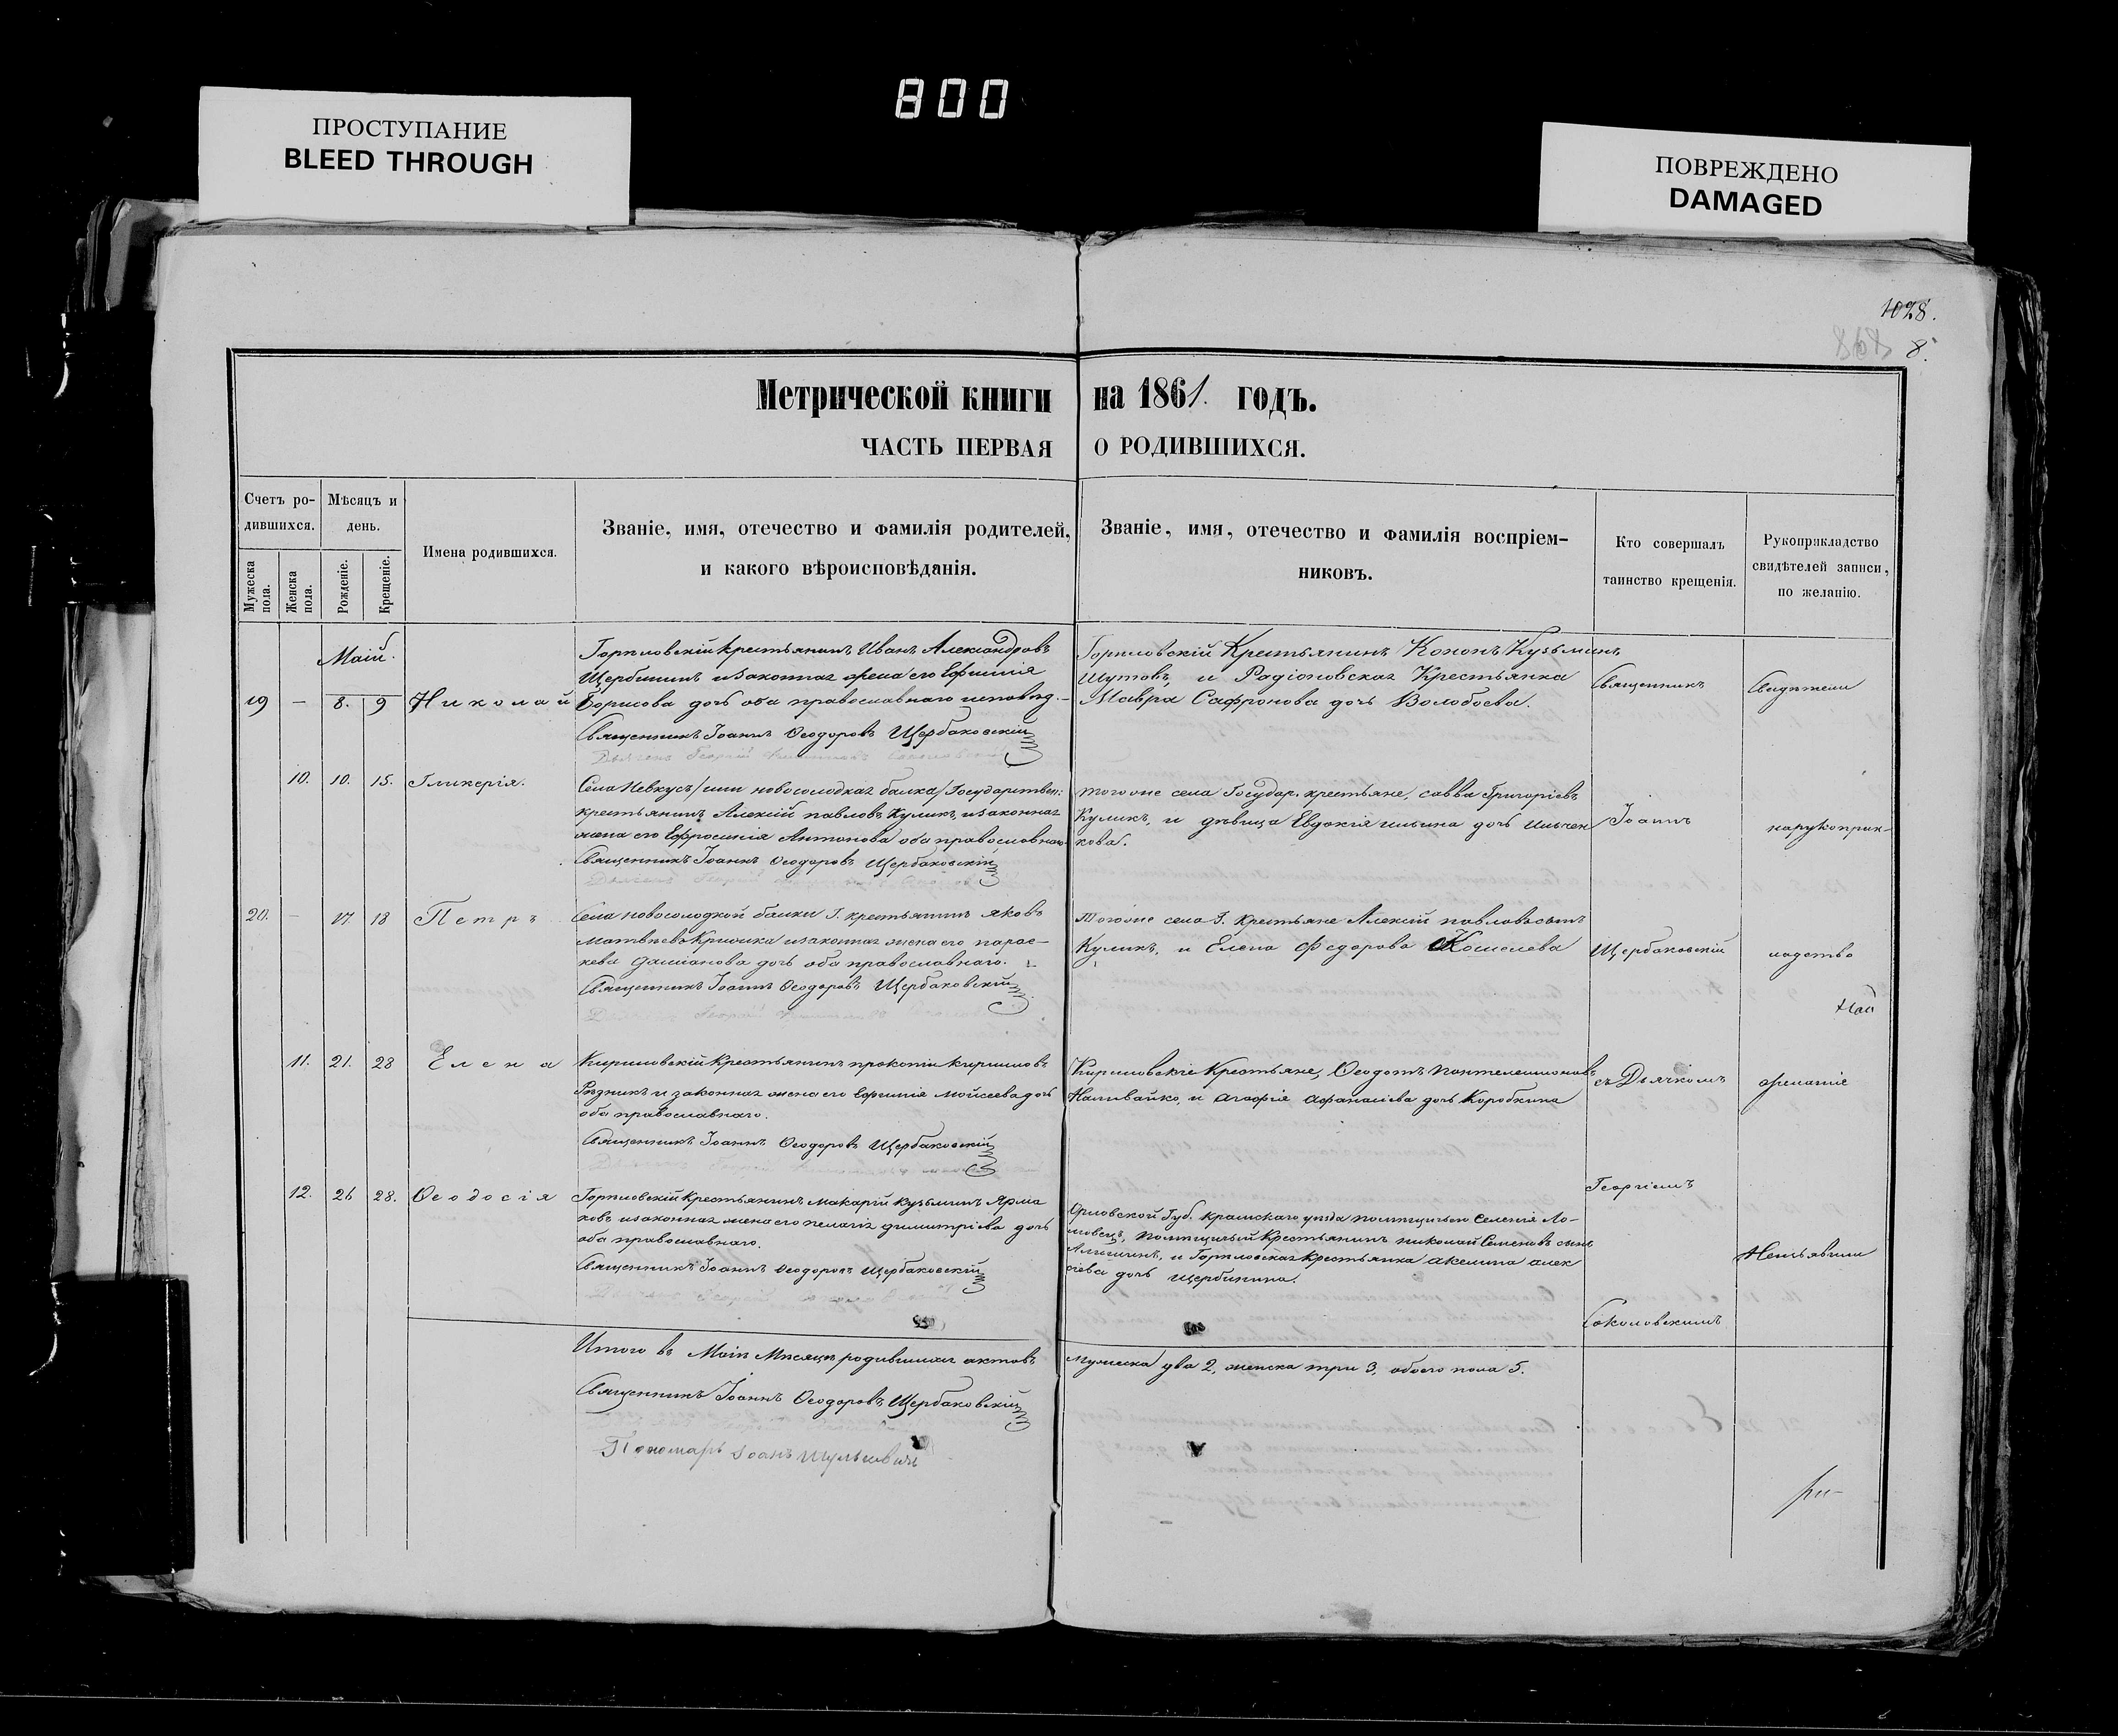 800
ПРОСТУПАНИЕ
BLEED THROUGH
ПОВРЕЖДЕНО
DAMAGED
1028.
8.
Метрической книги на 1861. годъ.
ЧАСТЬ ПЕРВАЯ О РОДИВШИХСЯ.
Счетъ ро-
дившихся.
Мужеска пола.
Женска пола.
Мѣсяцъ и
день.
Рожденіе.
Крещеніе.
Имена родившихся.
Званіе, имя, отечество и фамилія родителей,
и какого вѣроисповѣданія.
Званіе, имя, отечество и фамилія воспріем-
никовъ.
Кто совершалъ
таинство крещенія.
Рукоприкладство
свидѣтелей записи,
по желанію.
Маій.
19 — 8. 9 Николай
Горпиловскій крестьянинъ Иванъ Александровъ
Щербининъ и законная жена его Ефимія
Борисова дочь оба православнаго исповѣд.—
Священникъ Іоаннъ Ѳеодоровъ Щербаковскій
Горпиловскій Крестьянинъ Кононъ Кузьминъ
Шутовъ, и Радіоновская Крестьянка
Мавра Сафронова дочь Волобоева.
10. 10. 15. Гликерія.
Села Невкусъ /или новосолодкая балка/ Государствен:
крестьянинъ Алексій павловъ Куликъ, и законная
жена его Ефросинія Антонова оба православнаго
Священникъ Іоаннъ Ѳеодоровъ Щербаковскій
тогоже села Государ. крестьяне, савва Григоріевъ
Куликъ, и дѣвица Евдокія ильина дочь Ильчен
кова.
20. — 17 18 Петръ
Села новосолодкой балки Г. крестьянинъ яковъ
Матвѣевъ и законная жена его парас-
кева даміанова дочь оба православнаго.
Священникъ Іоаннъ Ѳеодоровъ Щербаковскій
тогоже села Г. крестьяне Алексій павловъ сынъ
Куликъ, и Елена Федорова Кошелева
11. 21. 28 Елена
Кириловскій Крестьянинъ прокопій кириловъ
Рѣзникъ и законная жена его Ефимія Мойсеева дочь
оба православнаго.
Священникъ Іоаннъ Ѳеодоровъ Щербаковскій
Кириловскіе Крестьяне, Ѳеодотъ пантелеимоновъ
Наливайко, и агафія афанасіева дочь Коробкина
12. 26 28. Ѳеодосія
Горпиловскій Крестьянинъ макарій кузьминъ Ярма
ковъ и законная жена его пелагія димитріева дочь
оба православнаго.
Священникъ Іоаннъ Ѳеодоровъ Щербаковскій
Орловской Губ. уѣзда помѣщичьяго селенія Ло-
помѣщичьій Крестьянинъ николай Семеновъ сынъ
и Горпиловская Крестьянка акелина алек
сіева дочь щербинина.
Священникъ
Іоаннъ
Щербаковскій
съ Дьячкомъ
Георгіемъ
Соколовскимъ
Свидѣтели
къ рукоприк-
ладству
желаніе
Неизъявили
Итого въ Маіѣ Мѣсяцѣ родившихся актовъ мужеска два 2, женска три 3, обоего пола 5.
Священникъ Іоаннъ Ѳеодоровъ Щербаковскій
Пономарь Іоанъ